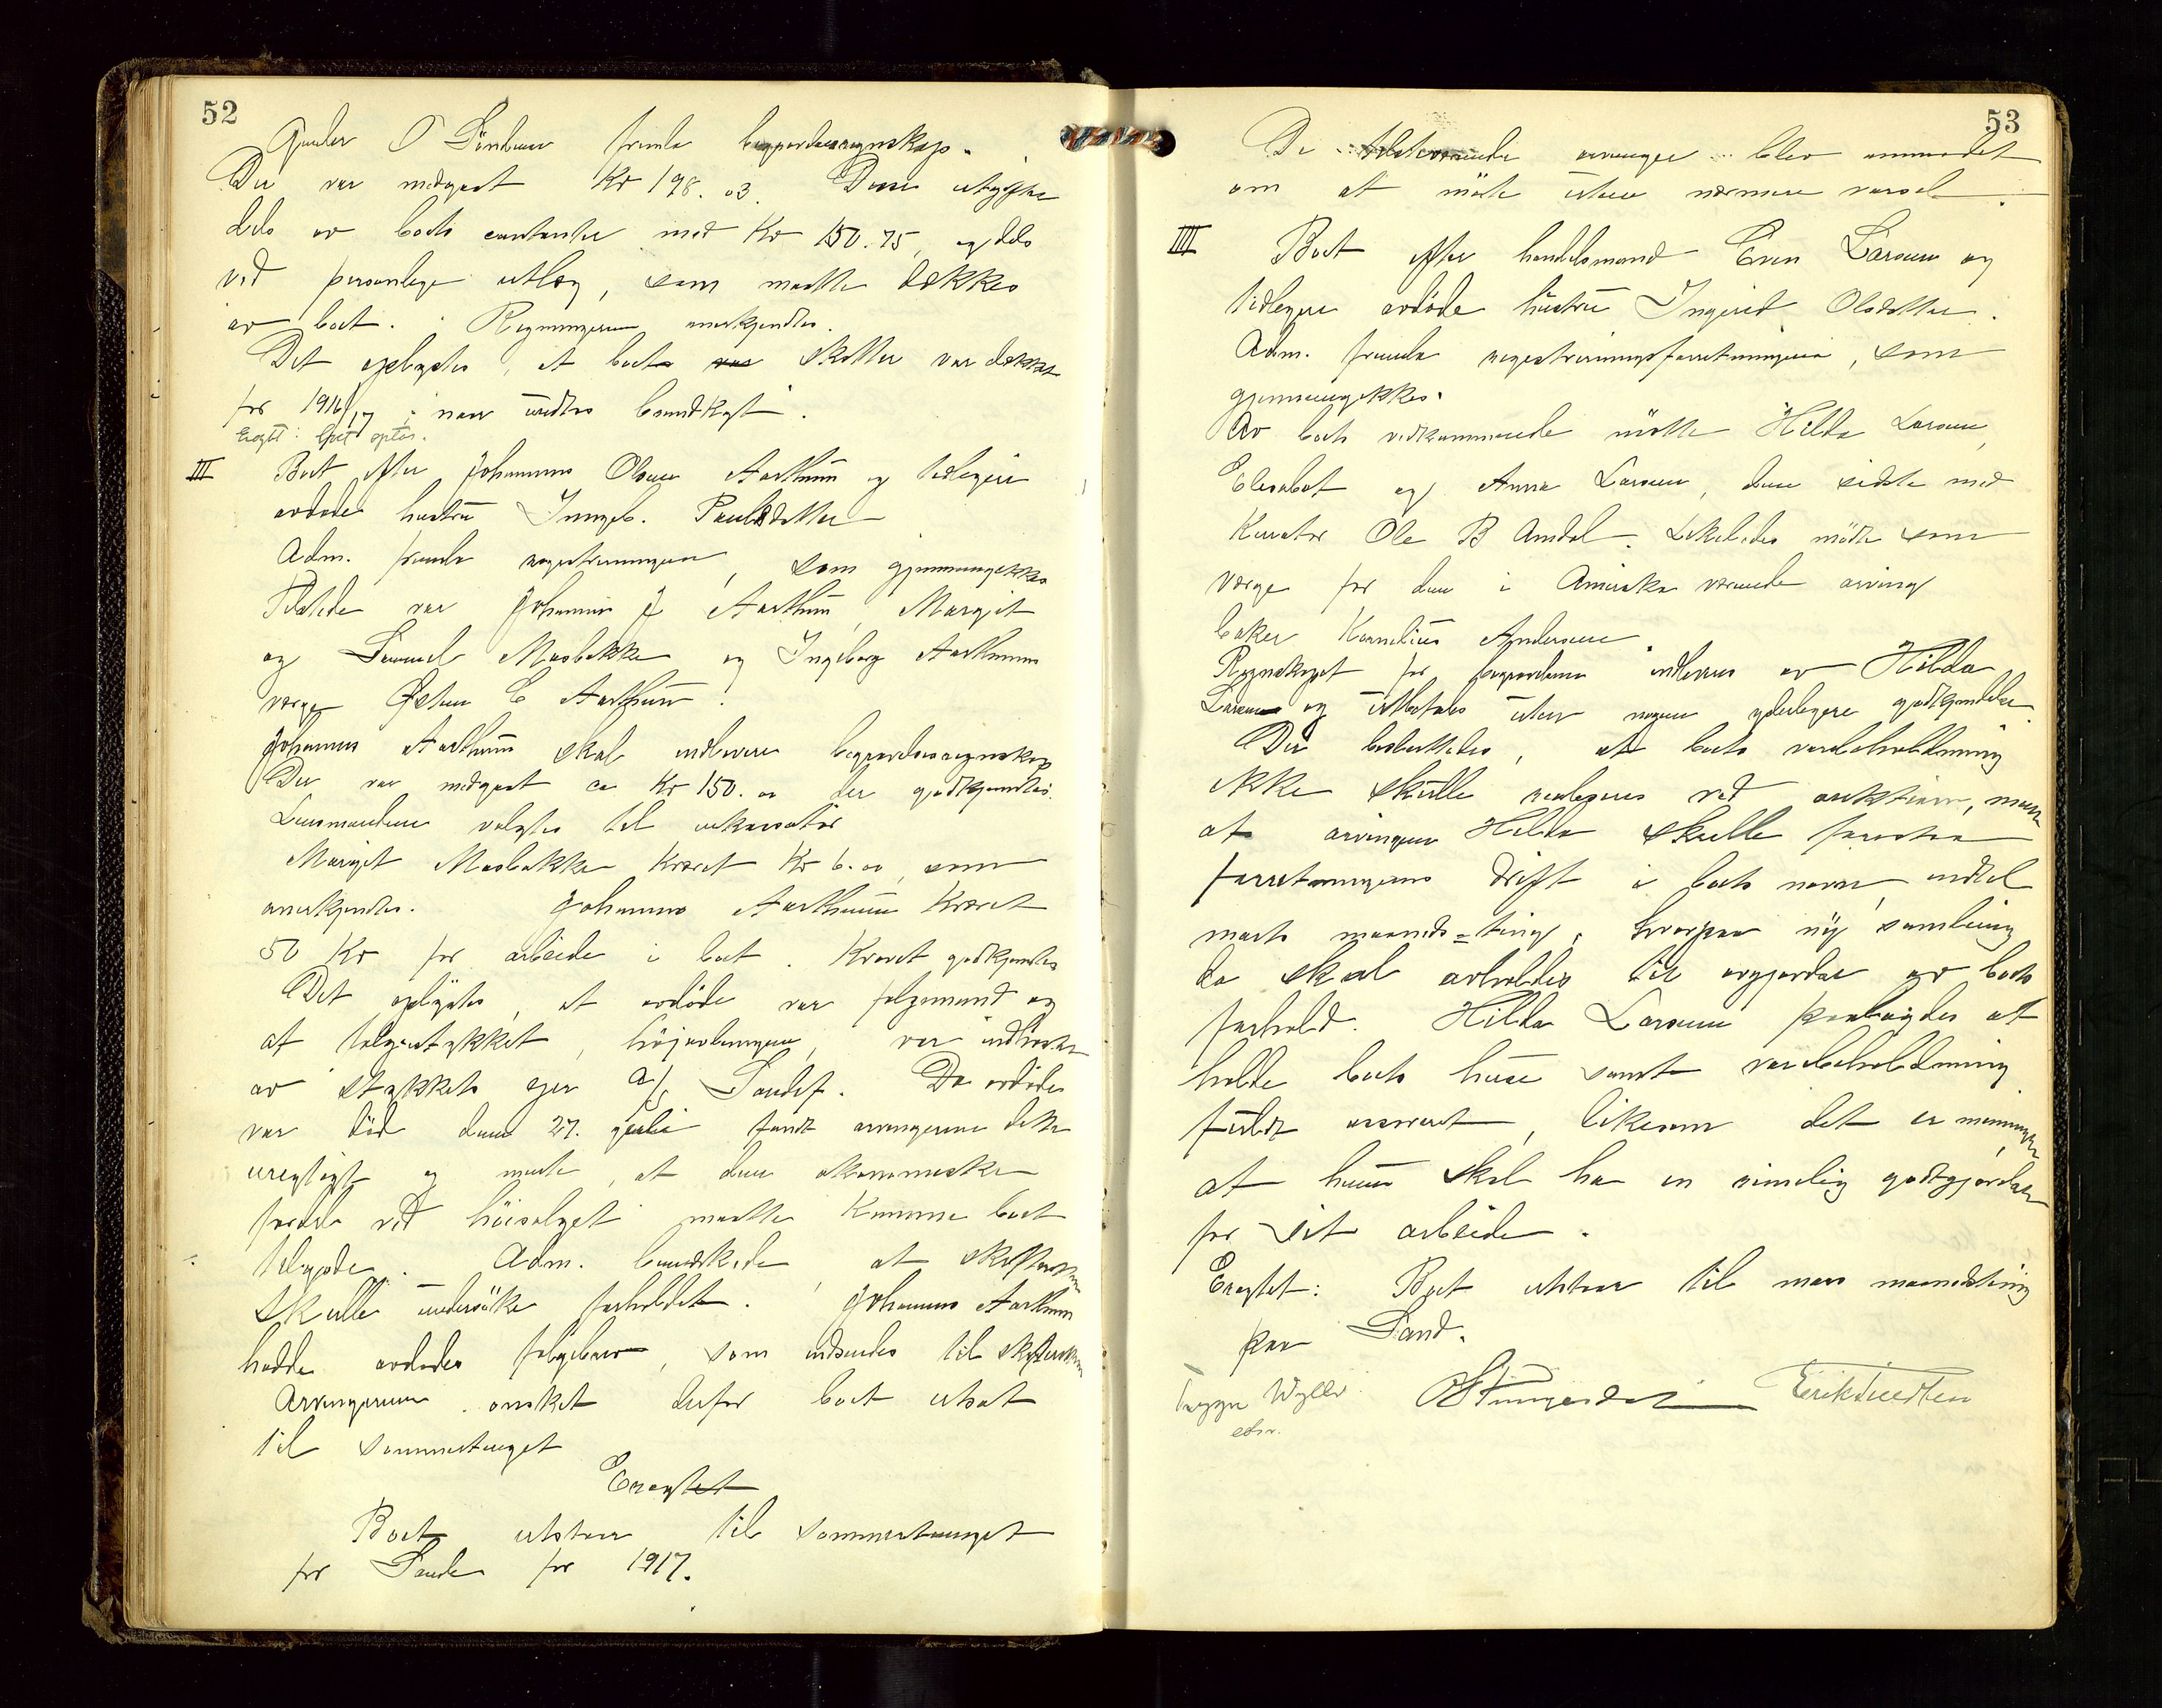 52
Gunder O fremla begravelsesregnskap.
Der var medgaat Kr 198.03. Disse utgifter
dels av boets contanter med Kr 150.75, og dels
ved personlige utlæg, som maatte dækkes
av boet. Regningerne anerkjendtes.
Det oplystes, at boets var skatter var dækket
for 1916/17
Eragtet: Boet optas.
III Boet efter Johannes Olsen Aarthun og tidligere
avdøde hustru Ingeb. Paulsdatter
Adm. fremla registreringen, som gjennemgikkes
Tilstede var Johannes J Aarthun, Margit
og Samuel Mosbakke og Ingeborg Aarthuns
verge Østen E Aarthun.
Johannes Aarthun skal indlevere begravelsesregnskap
Der var medgaat ca Kr 150.00 der godkjendtes.
Lensmanden valgtes til inkassator
Margit Mosbakke krævet Kr 6.00, som
anerkjendtes. Johannes Aarthun krævet
50 Kr for arbeide i boet. Kravet godkjendtes
Det oplystes, at avdøde var følgemand og
at følgestykket, høiavlingen, var indhøstet
av stykkets eier A/S Sandsf. Da avdøde
var død den 27. juli fandt arvingerne dette
uregtigt og mente, at den økonomiske
fordel ved høisalget maatte komme boet
tilgode. Adm. bemerkede, at skifteretten
skulle undersøke forholdet. Johannes Aarthun
hadde avdødes følgebrev, som indsendes til skifteretten
Arvingerne ønsket derfor boet utsat
til sommertinget
Eragtet
Boet utstaar til sommertinget
for Sande for 1917.
53
De tilstedeværende arvinger blev anmodet
om at møte uten nærmere varsel.
IIII Boet efter handelsmand Even Larsen og
tidligere avdøde hustru Ingerid Olsdatter.
Adm. fremla registreringsforretningen, som
gjennemgikkes.
Av boets vedkommende møtte Hilda Larsen,
Elisabet og Anna Larsen, den sidste med
Kurator Ole B Amdal. Likeledes møtte som
verge for den i Amerika værende arving
baker Kornelius Andersen.
Regnskapet for begravelsen indleveres av Hilda
Larsen og utbetales uten nogen yderligere godkjendelse
Det besluttedes, at boets varebeholdning
ikke skulle realiseres ved auktion, men
at arvingen Hilda skulle forestaa
forretningens drift i boets navn, indtil
marts maaneds=ting, hvorpaa ny samling
da skal avholdes til avgjørelse av boets
forhold. Hilda Larsen paalagdes at
holde boets huse samt varebeholdning
fuldt assurert, likesom det er meningen
at hun skal ha en rimelig godtgjørelse
for sit arbeide.
Eragtet: Boet utstaar til mars maanedsting
paa Sand.
Trygve Wyller
cstr.
Erik Tvedten